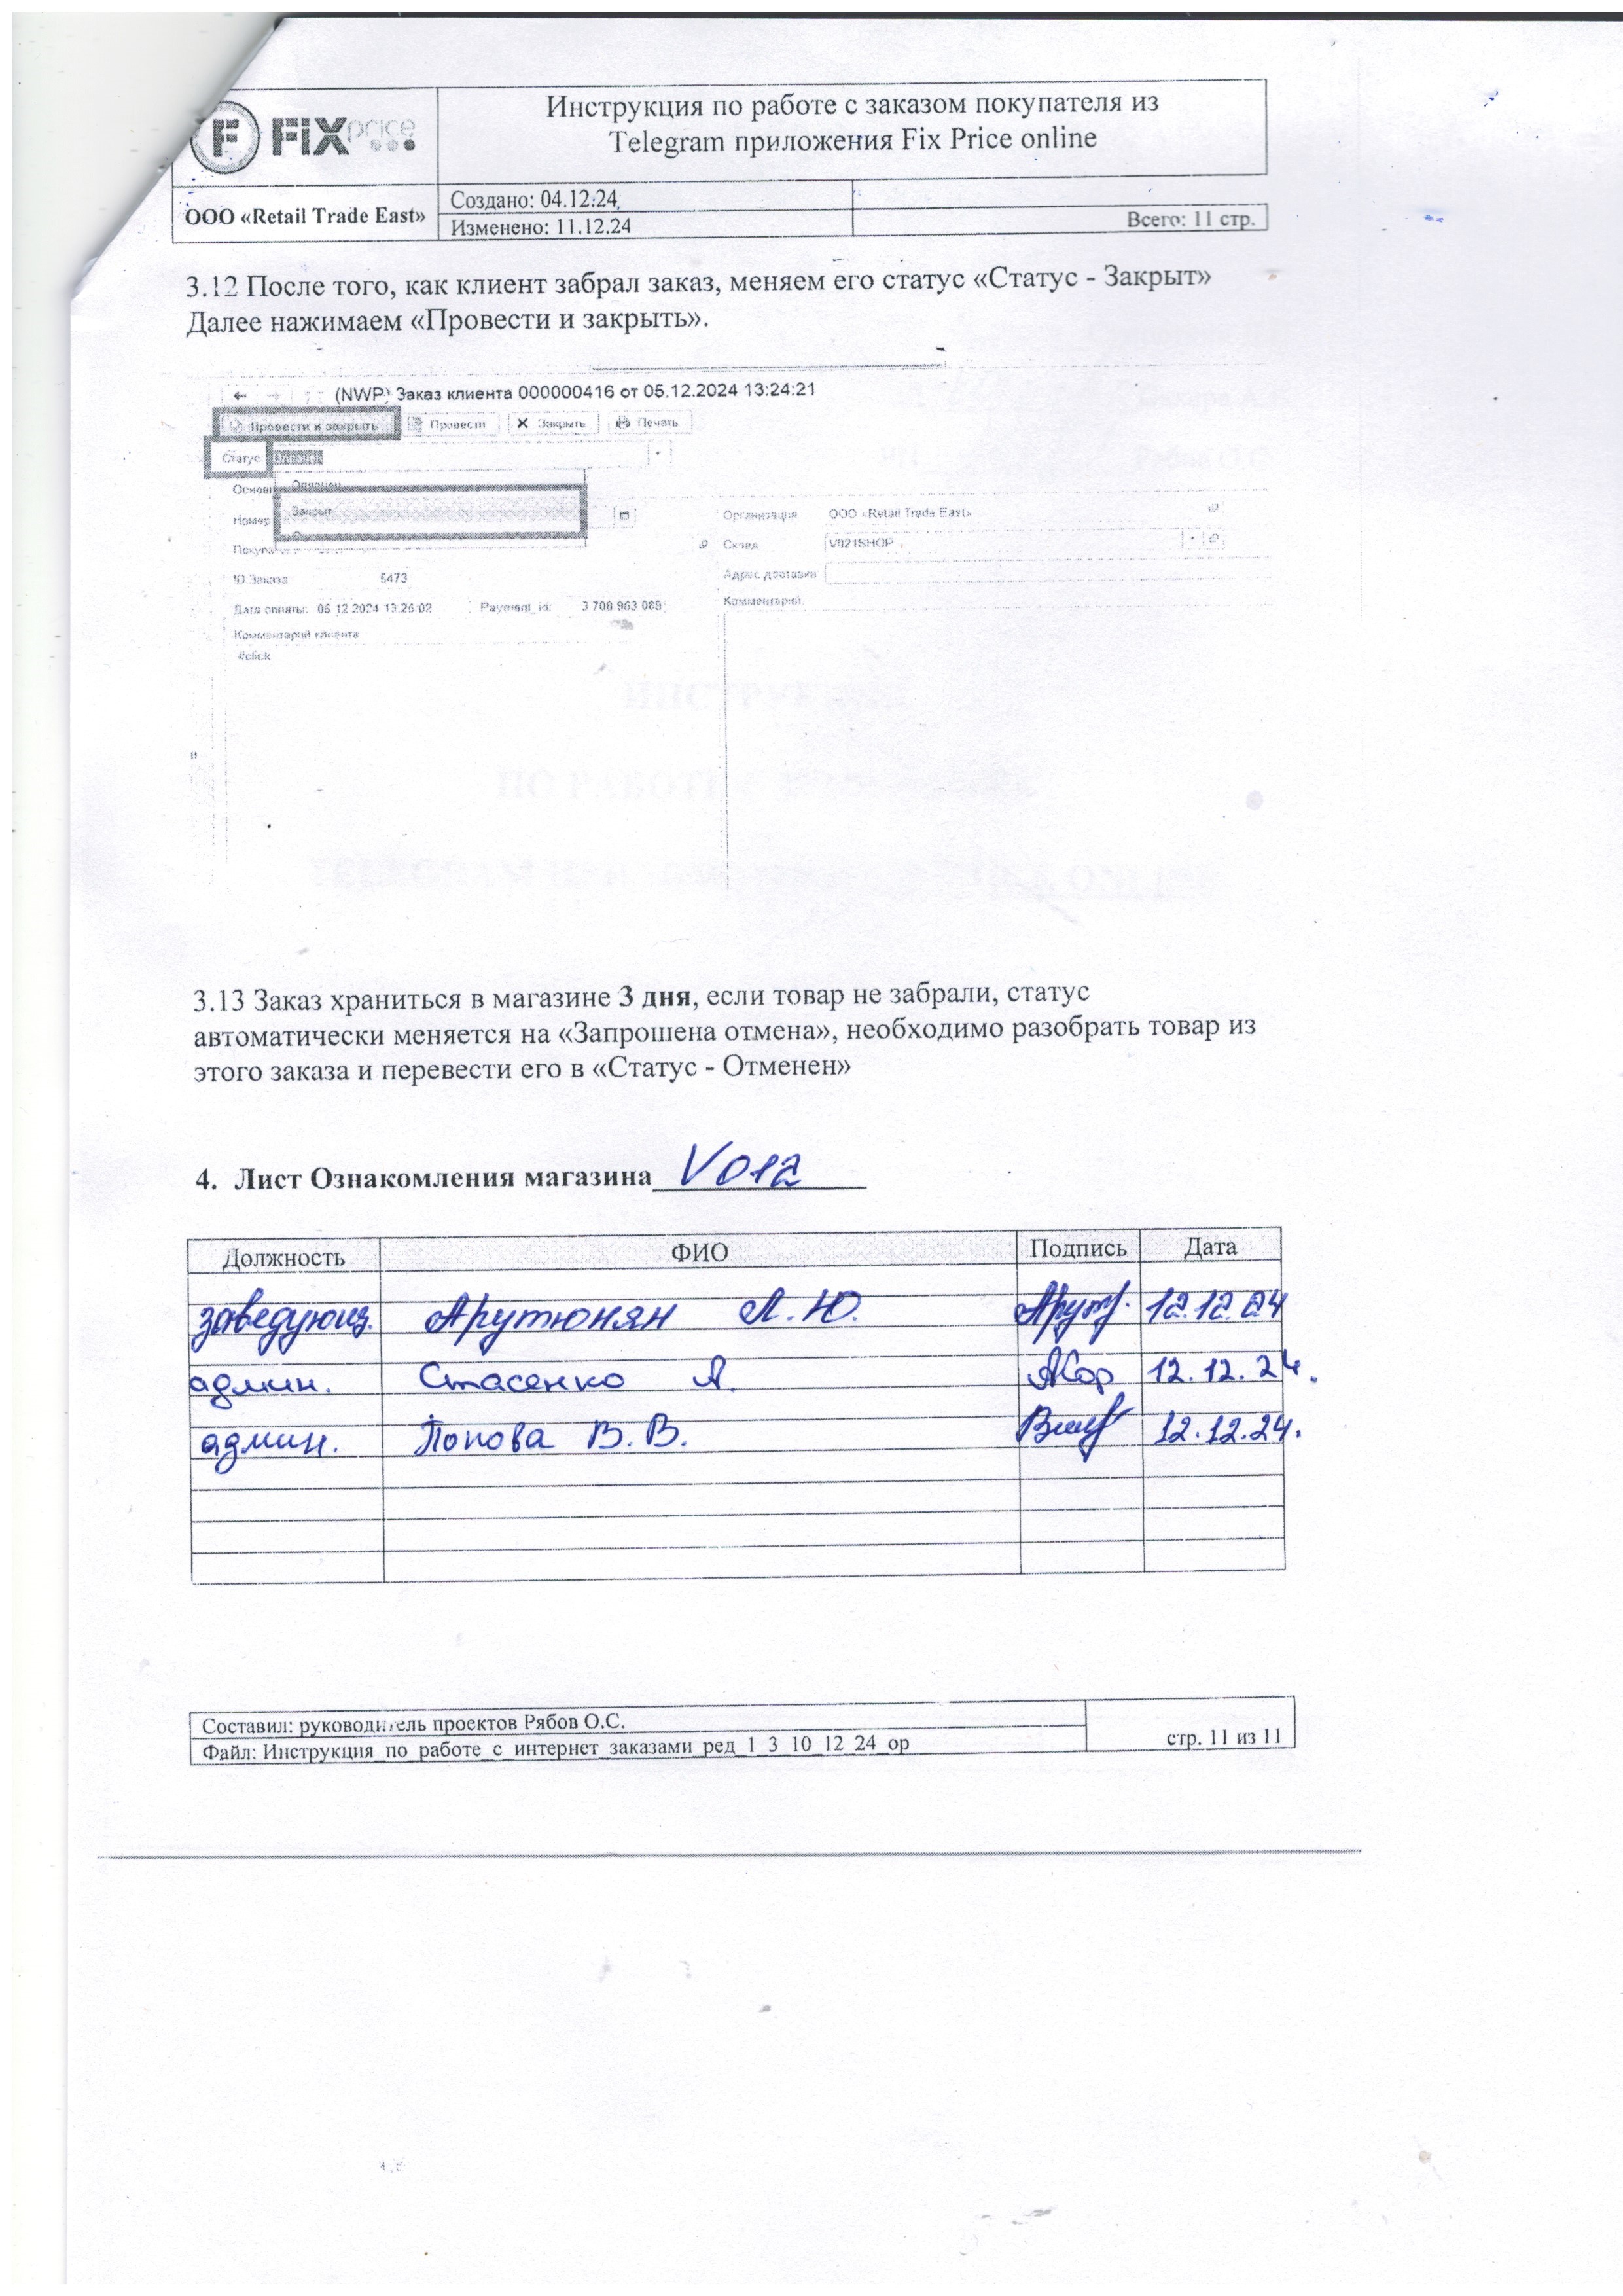 F FiX price
Инструкция по работе с заказом покупателя из
Telegram приложения Fix Price online
ООО «Retail Trade East»
Создано: 04.12.24
Изменено: 11.12.24
Всего: 11 стр.
3.12 После того, как клиент забрал заказ, меняем его статус «Статус - Закрыт»
Далее нажимаем «Провести и закрыть».
(NWP) Заказ клиента 000000416 от 05.12.2024 13:24:21
Провести и закрыть Провести Закрыть Печать
Статус
Закрыт
Номер
Организация ООО «Retail Trade East»
Склад V021SHOP
ID Заказа 5473
Адрес доставки
Дата оплаты: 05.12.2024 13:26:02 Payment_id: 3 708 963 089
Комментарий:
Комментарий клиента
#click
3.13 Заказ храниться в магазине 3 дня, если товар не забрали, статус
автоматически меняется на «Запрошена отмена», необходимо разобрать товар из
этого заказа и перевести его в «Статус - Отменен»
4. Лист Ознакомления магазина V012
Должность ФИО Подпись Дата
заведующ. Арутюнян Л.Ю. 12.12.24
админ. Стасенко А. 12.12.24.
админ. Попова В.В. 12.12.24.
Составил: руководитель проектов Рябов О.С.
Файл: Инструкция_по_работе_с_интернет_заказами_ред_1_3_10_12_24_ор
стр. 11 из 11